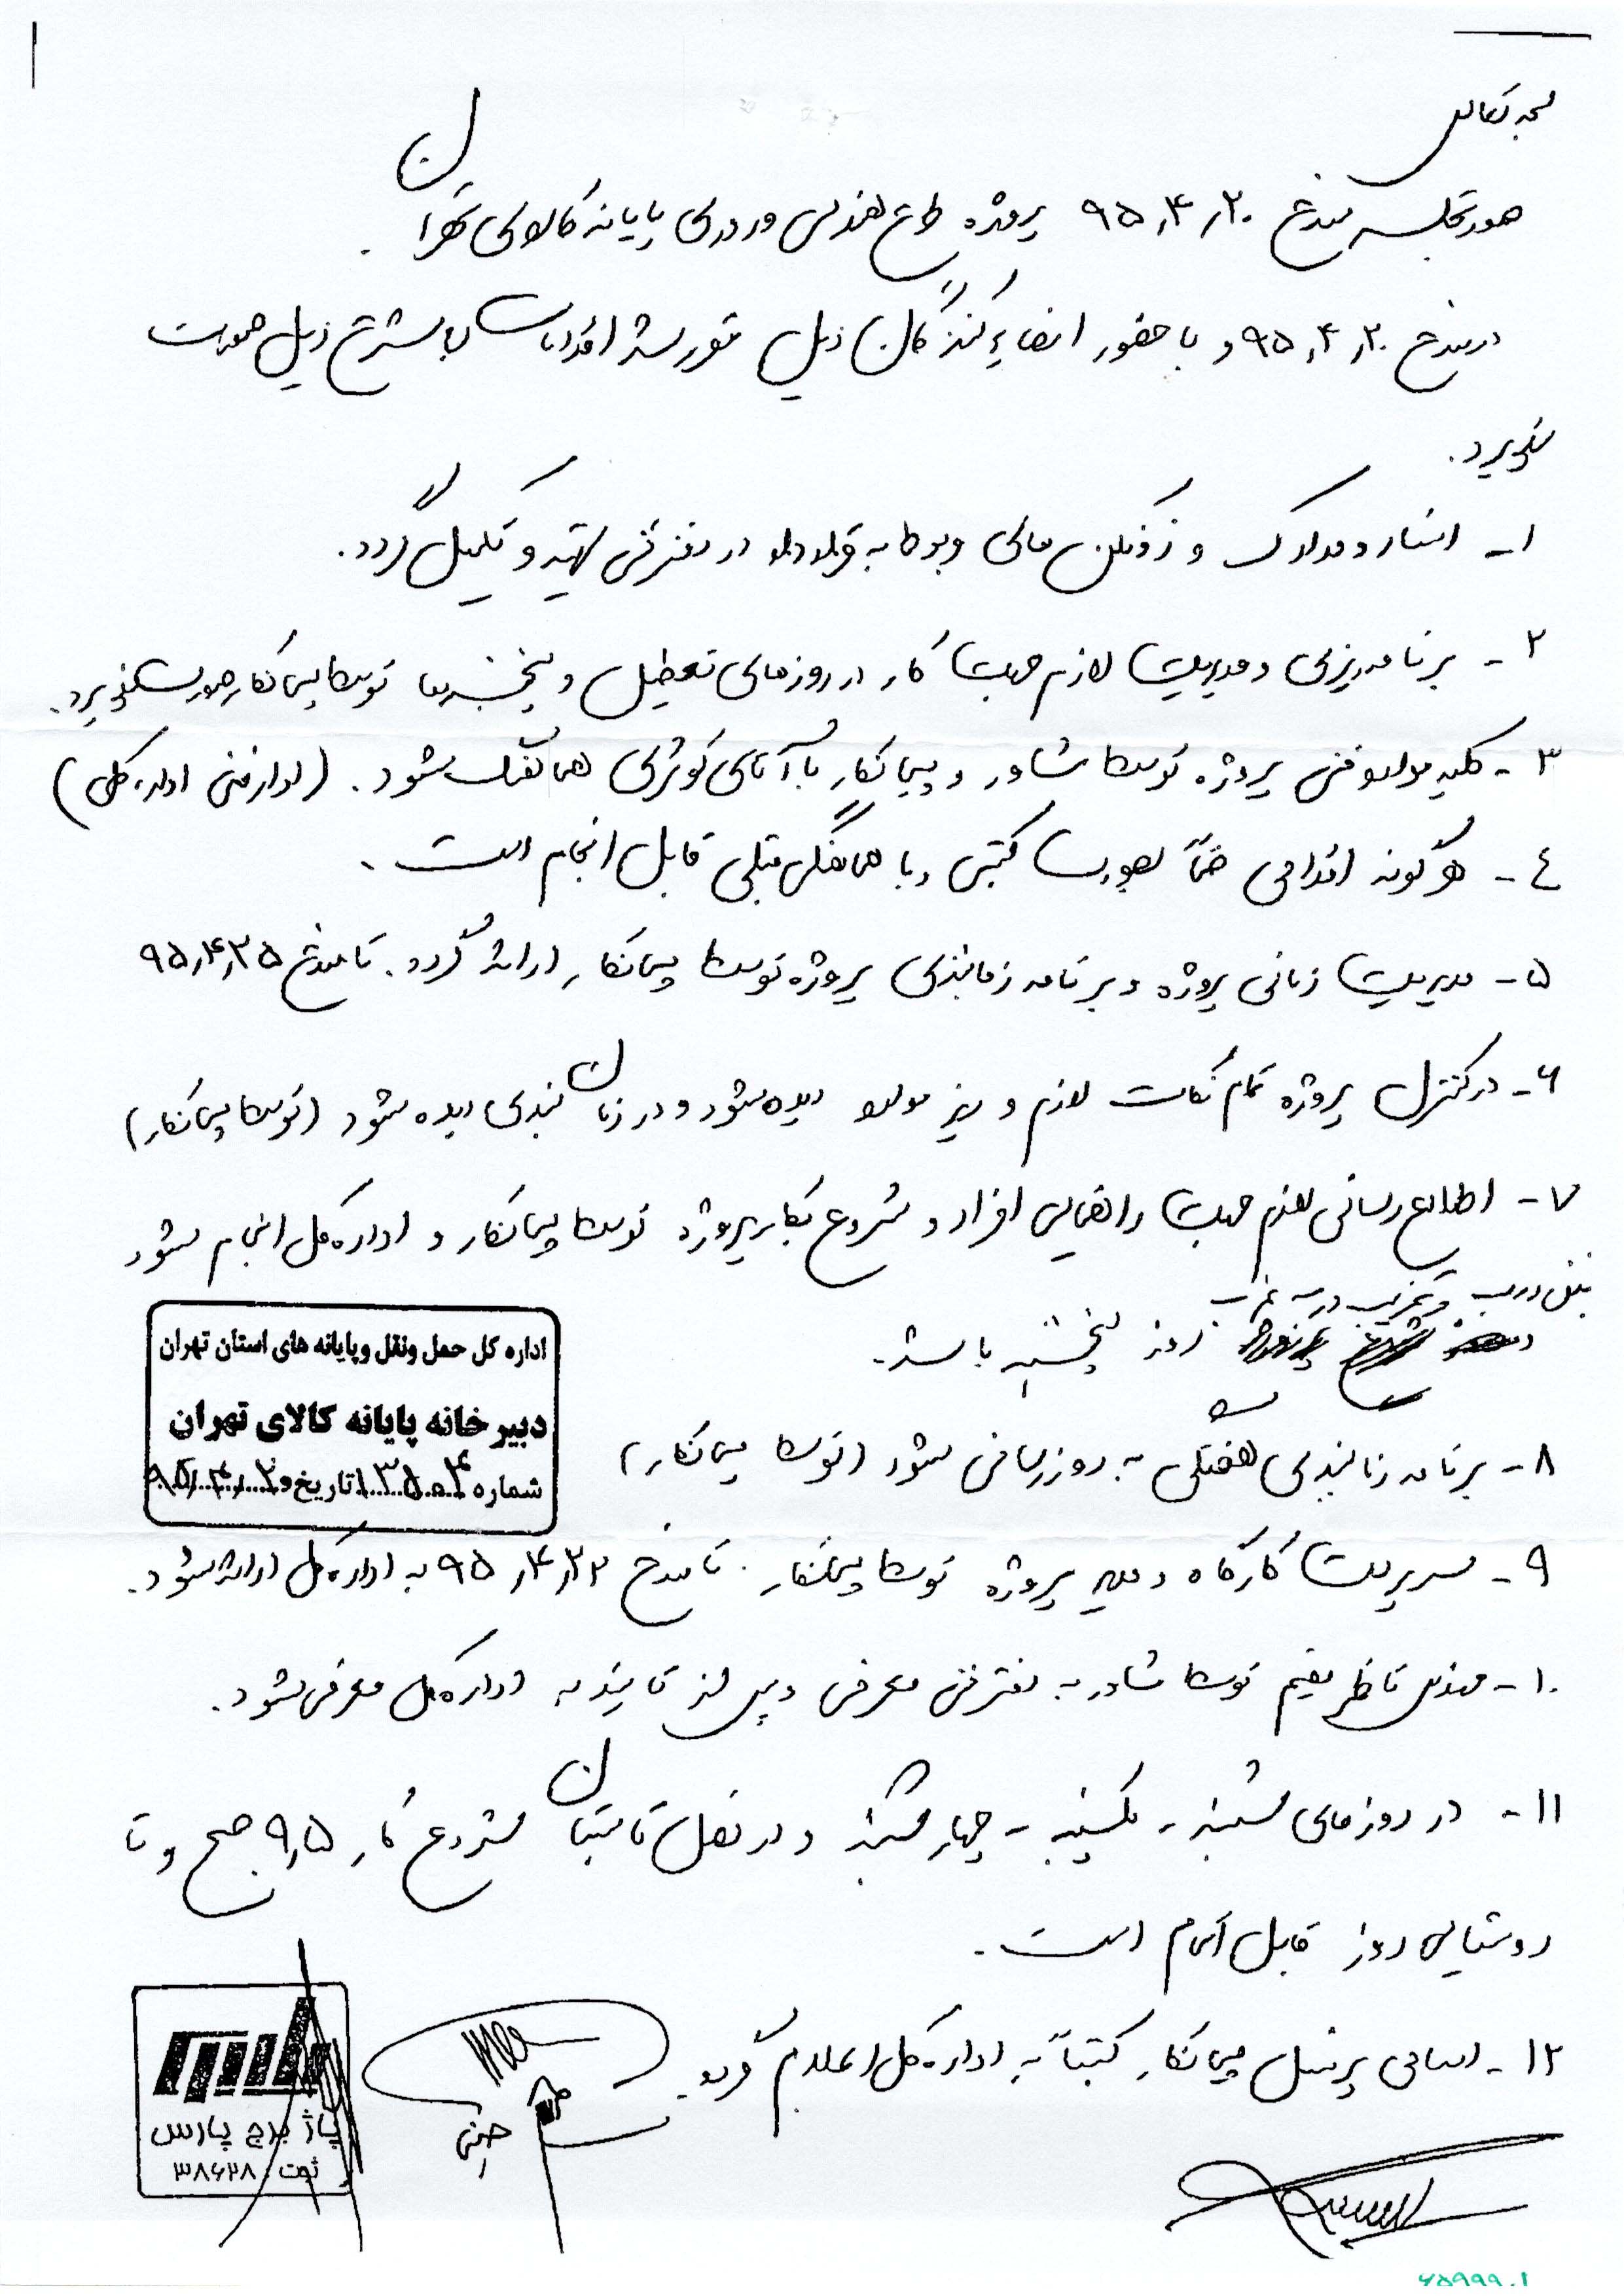 بسمه تعالی
صورتجلسه مورخ ۹۵٫۴٫۲۰ پروژه طرح هندسی ورودی پایانه کالای تهران
در مورخ ۹۵٫۴٫۲۰ و با حضور امضاء کنندگان ذیل مقرر شد اقدامات به شرح ذیل صورت
پذیرد.
۱- اسناد و مدارک و های مربوط به قرارداد در دفتر فنی تهیه و تکمیل گردد.
۲- برنامه ریزی و مدیریت لازم جهت کار در روزهای تعطیل و پنجشنبه ها توسط پیمانکار صورت پذیرد.
۳- کلیه موارد فنی پروژه توسط مشاور و پیمانکار با آقای کوثری هماهنگ شود. (ادار فنی اداره کل)
٤- هرگونه اقدامی حتماً بصورت کتبی و با هماهنگی قبلی قابل انجام است.
۵- مدیریت زمانی پروژه و برنامه زمانبندی پروژه توسط پیمانکار ارائه گردد. تا مورخ ۹۵٫۴٫۲۵
۶- در کنترل پروژه تمام نکات لازم و ریز موارد دیده شود و در زمان بندی دیده شود (توسط پیمانکار)
۷- اطلاع رسانی لازم جهت راهنمایی افراد و شروع بکار پروژه توسط پیمانکار و اداره کل انجام شود
و تخریب درب غربی
روز پنجشنبه باشد.
۸- برنامه زمانبندی هفتگی به روز رسانی شود (توسط پیمانکار)
اداره کل حمل ونقل وپایانه های استان تهران
دبیرخانه پایانه کالای تهران
شماره ۱۳۵۰۴ تاریخ ۹۵/۴/۲۰
۹- سرپرست کارگاه و مدیر پروژه توسط پیمانکار. تا مورخ ۹۵٫۴٫۲۲ به اداره کل ارائه شود.
۱۰- مهندس ناظر مقیم توسط مشاور به دفتر فنی معرفی و پس از تائید به اداره کل معرفی شود.
۱۱- در روزهای شنبه - یکشنبه - چهارشنبه و در فصل تابستان شروع کار ۹٫۵ صبح و تا
روشنایی روز قابل انجام است.
۱۲- اسامی پرسنل پیمانکار کتباً به اداره کل اعلام گردد.
پاژ برج پارس
ثبت: ۳۸۶۲۸
۶۵۹۹۹۰۱